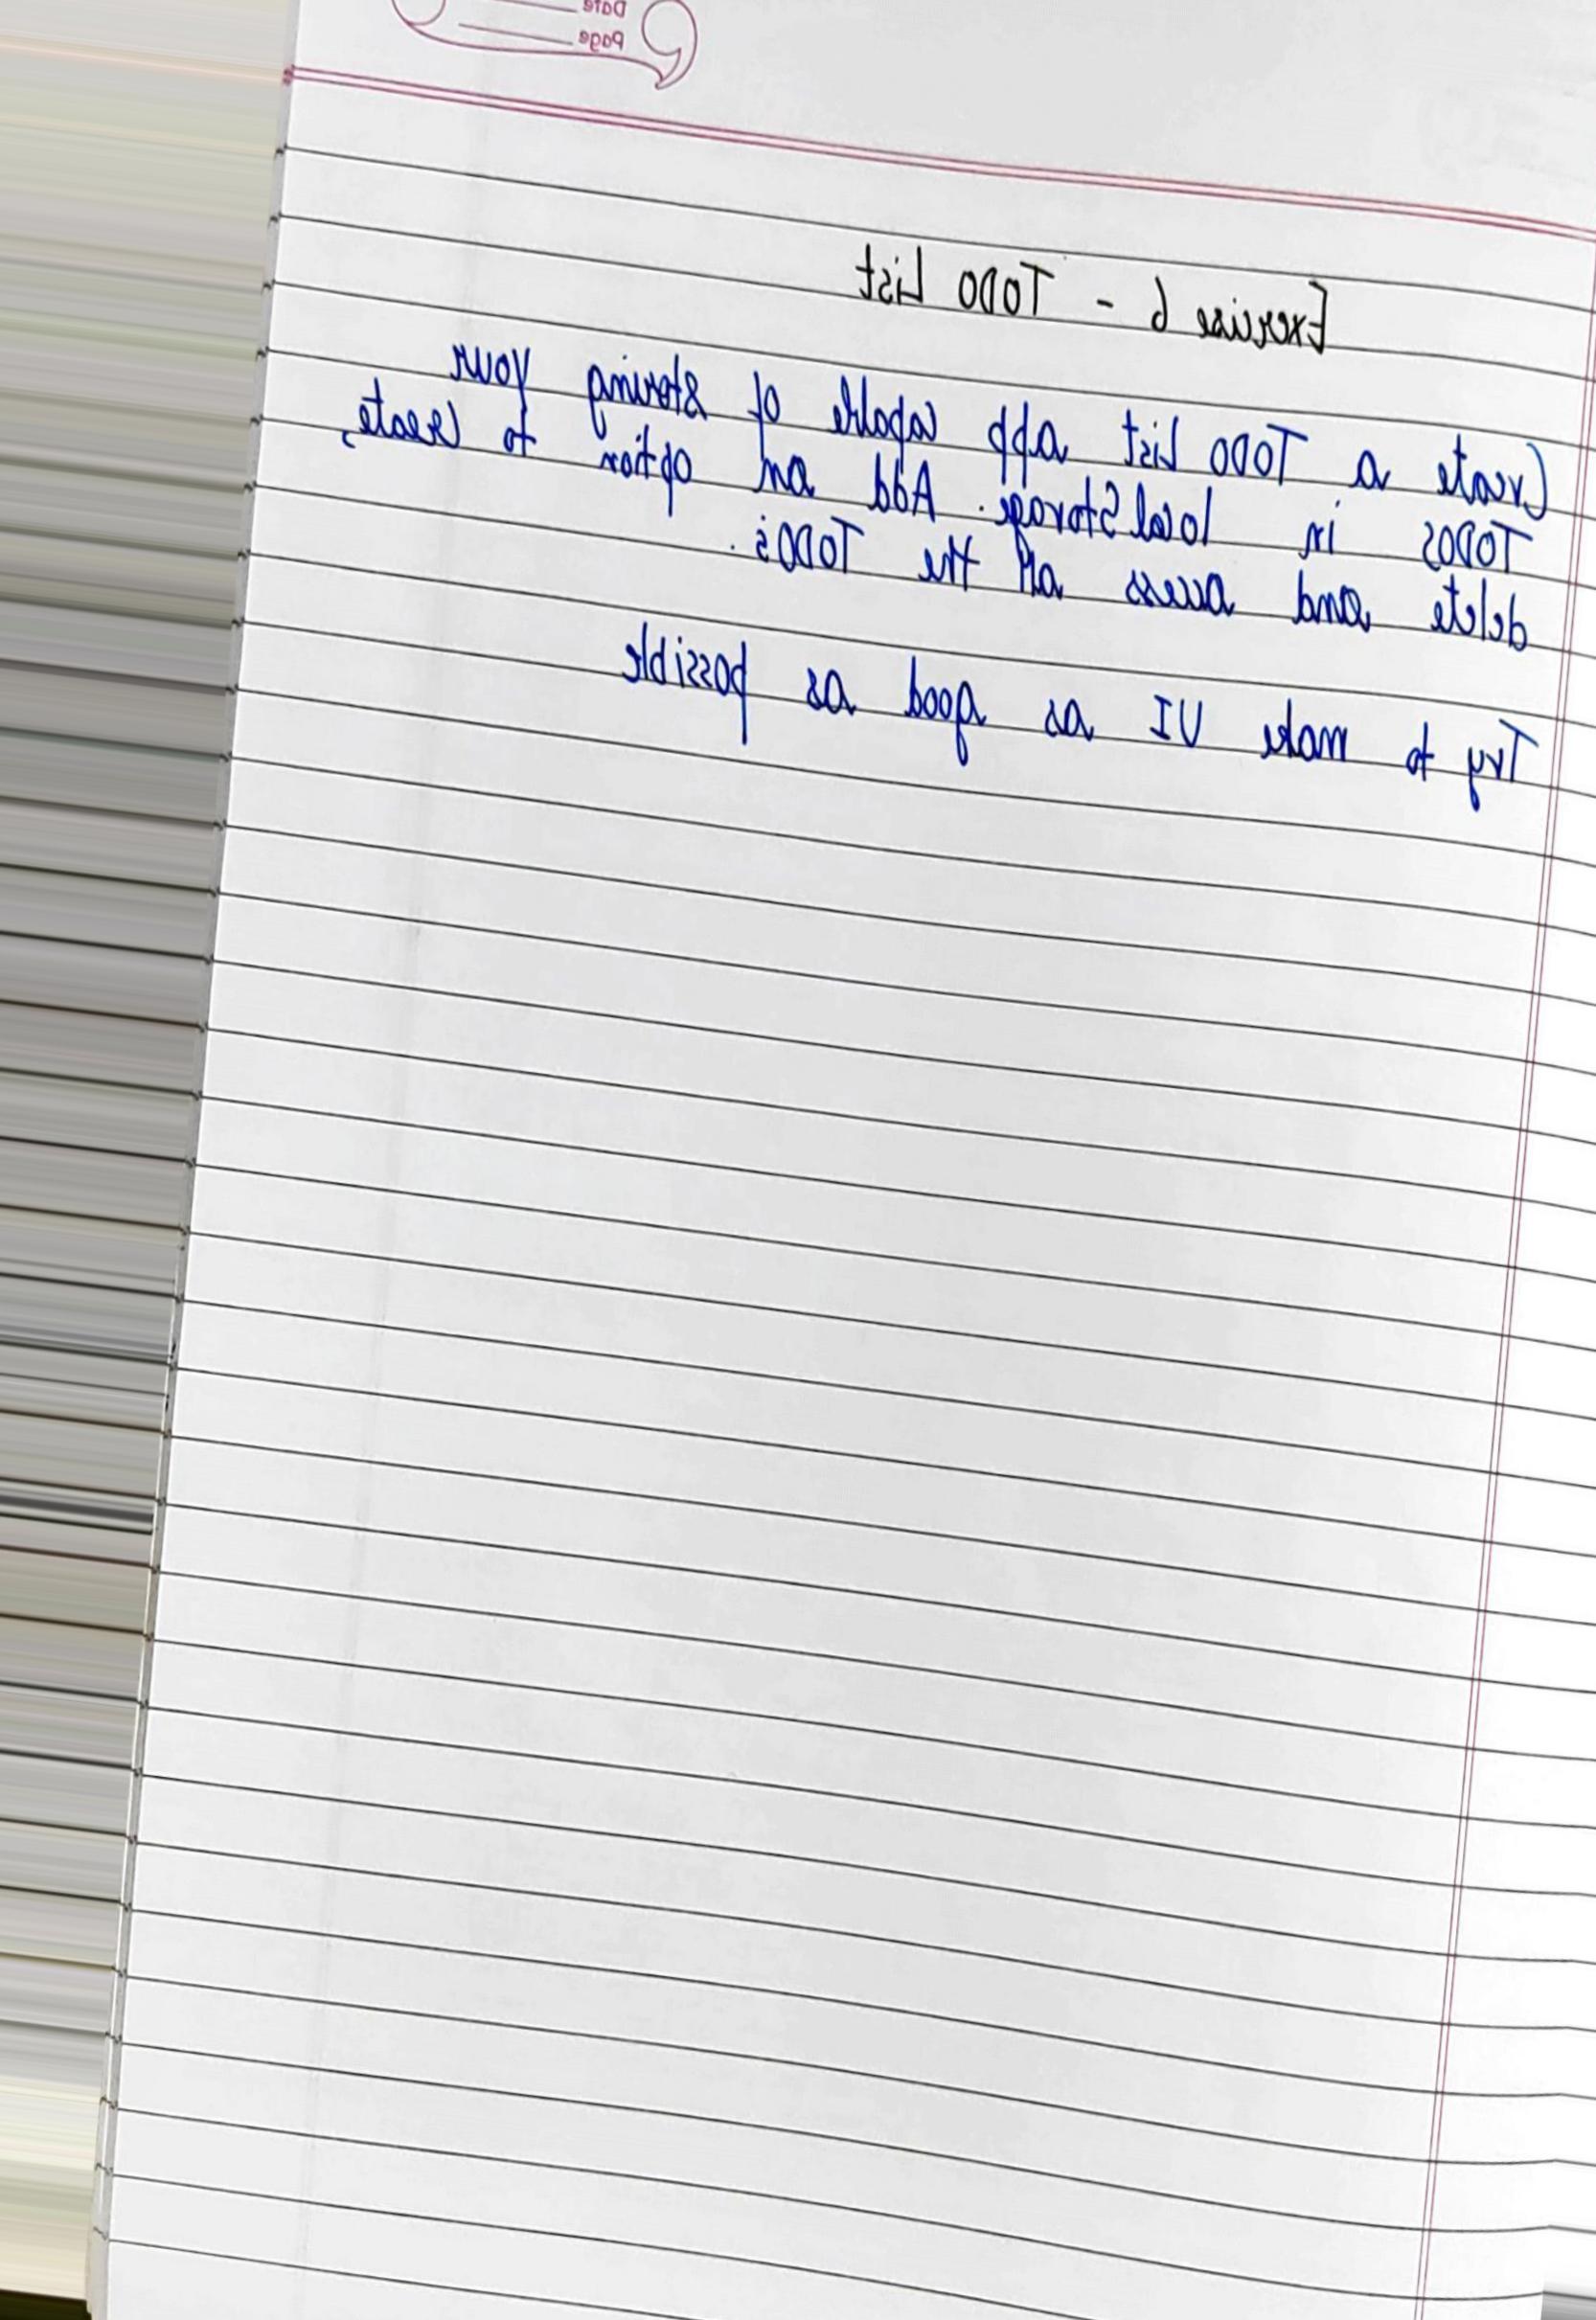 Date
Page
Exercise 6 - TODO List
Create a TODO List app capable of storing your
TODOS in localStorage. Add an option to create,
delete and access all the TODOs.
Try to make UI as good as possible